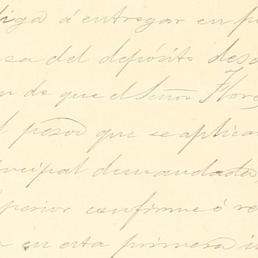 liga á entregar en p
sa del depósito des
n de que el Señor Flore
l pesos que se aplica
incipal demandado,
uperior confirme ó re
en esta primera i